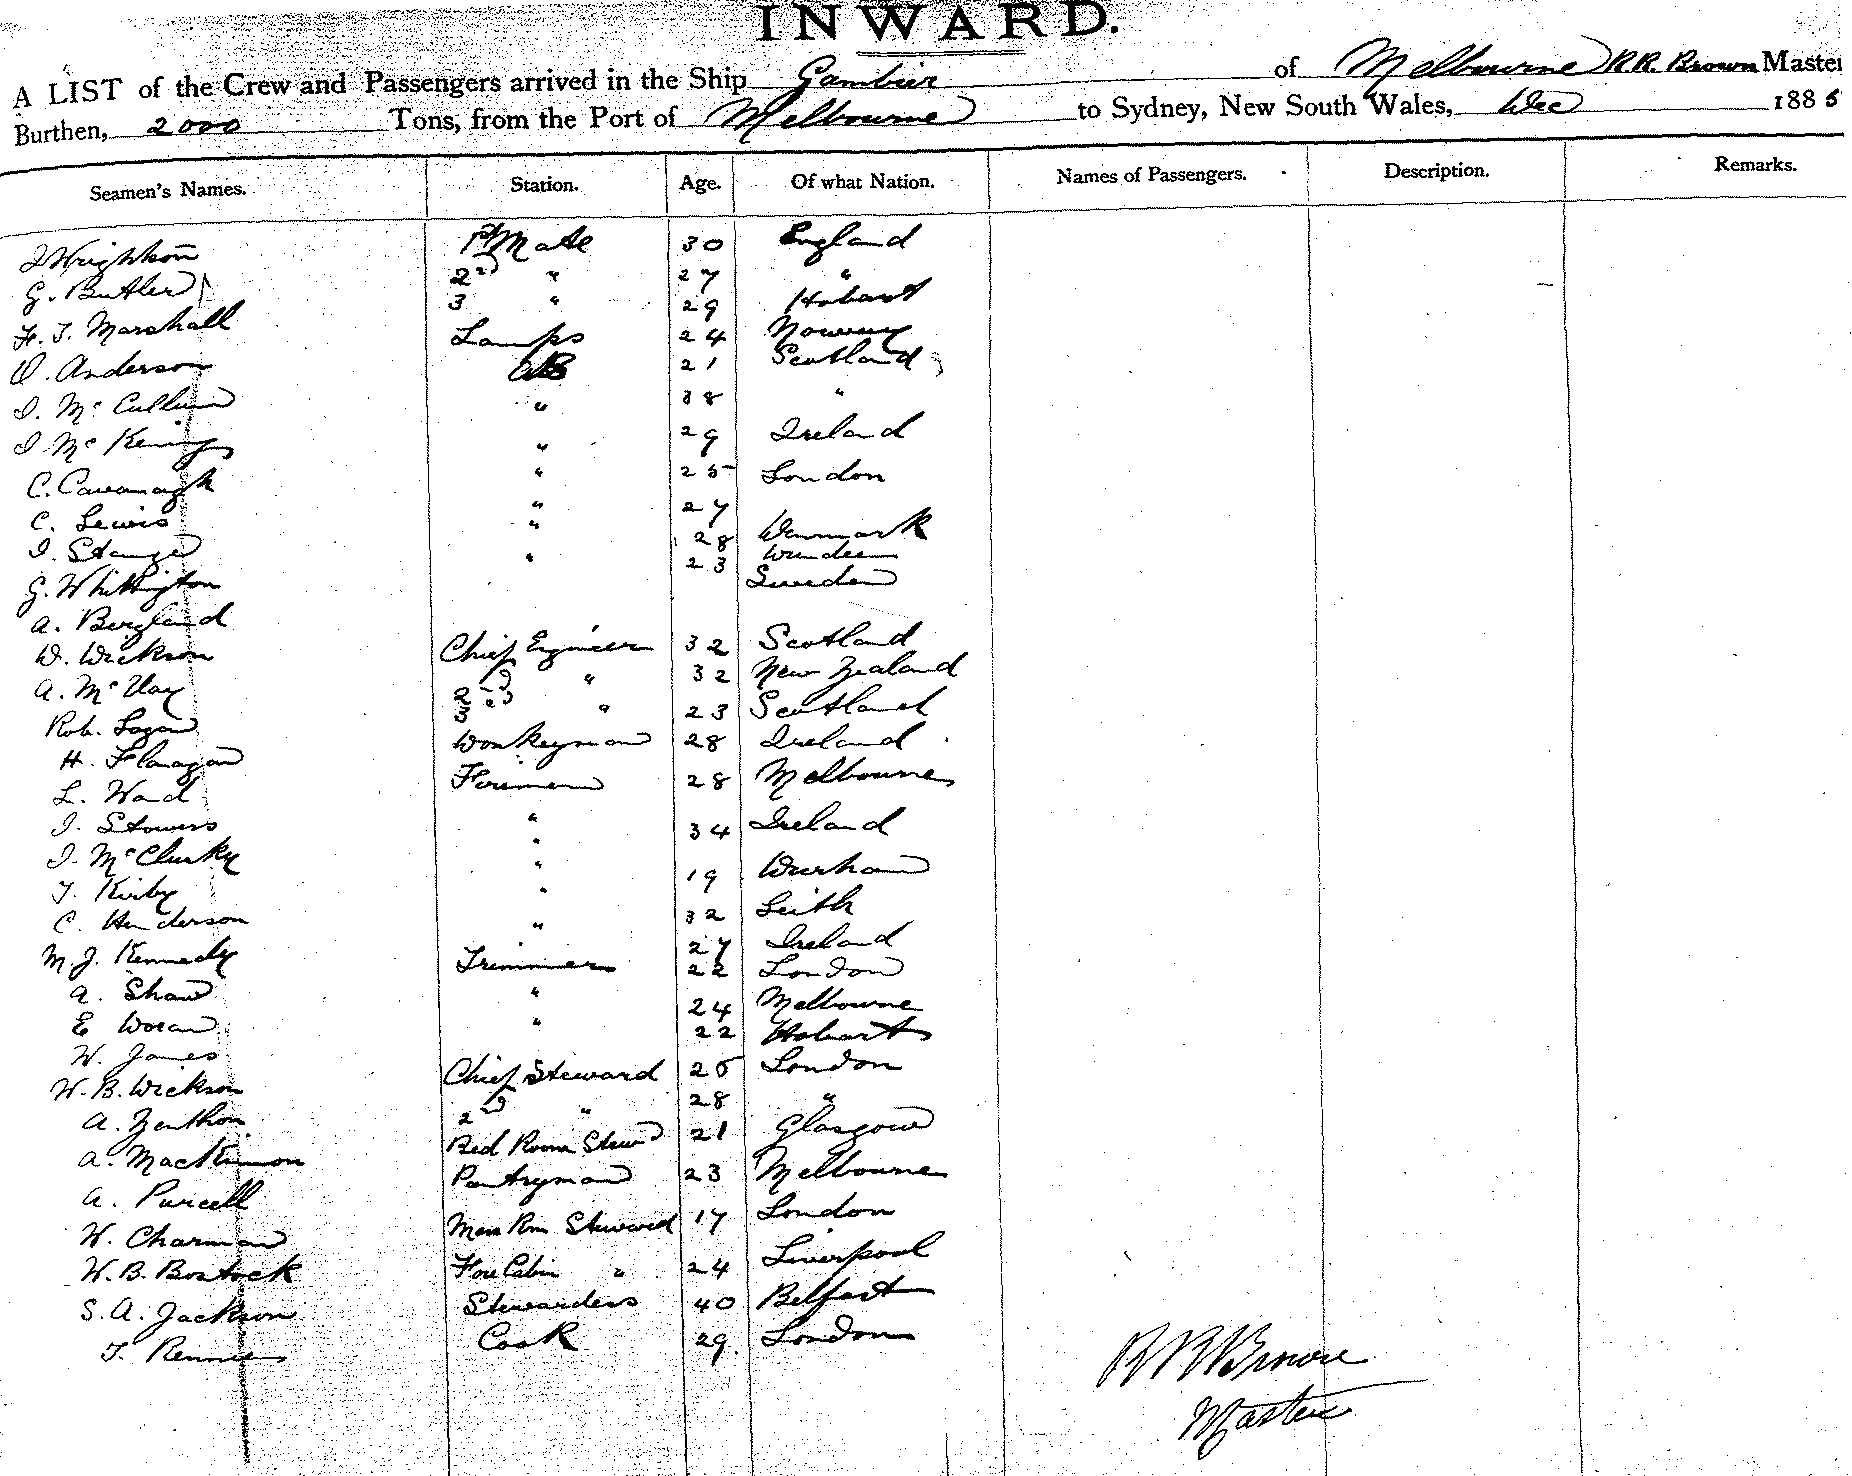 INWARD.
A LIST of the Crew and Passengers arrived in the Ship Gambier of Melbourne R.R. Brown Master
Burthen, 2000 Tons, from the Port of Melbourne to Sydney, New South Wales, Dec 1885
Seamen's Names. Station. Age. Of what Nation. Names of Passengers. Description. Remarks.
J Wrightson 1st Mate 30 England
G. Butler 2nd " 27 "
F. J. Marshall 3 " 29 Hobart
O. Anderson Lamps 24 Norway
J. Mc Cullum AB 21 Scotland
J. Mc " 38 "
C. Cavanagh " 29 Ireland
C. Lewis " 25 London
J. " 27
G. Whittington " 28 Denmark
A. Bergland " 23 Sweden
W. Dickson Chief Engineer 32 Scotland
A. Mc 2nd " 32 New Zealand
Rob. Logan 3rd " 23 Scotland
H. Flanagan Donkeyman 28 Ireland
L. Ward Firemen 28 Melbourne
J. Stowers "
J. McClusky " 34 Ireland
T. Kirby " 19 Durham
C. Henderson " 32 Leith
M. J. Kennedy " 27 Ireland
A. Shaw Trimmers 22 London
E Doran " 24 Melbourne
W. James " 22 Hobart
W. B. Dickson Chief Steward 25 London
A. Zenthon 2nd " 28 "
A. MacKinnon Bed Room Stewd 21 Glasgow
A. Purcell Pantryman 23 Melbourne
W. Charman Mess Rm Steward 17 London
W. B. Bostock Fore Cabin " 24 Liverpool
S. A. Jackson Stewardess 40 Belfast
T. Rennie Cook 29 London
R R Brown
Master